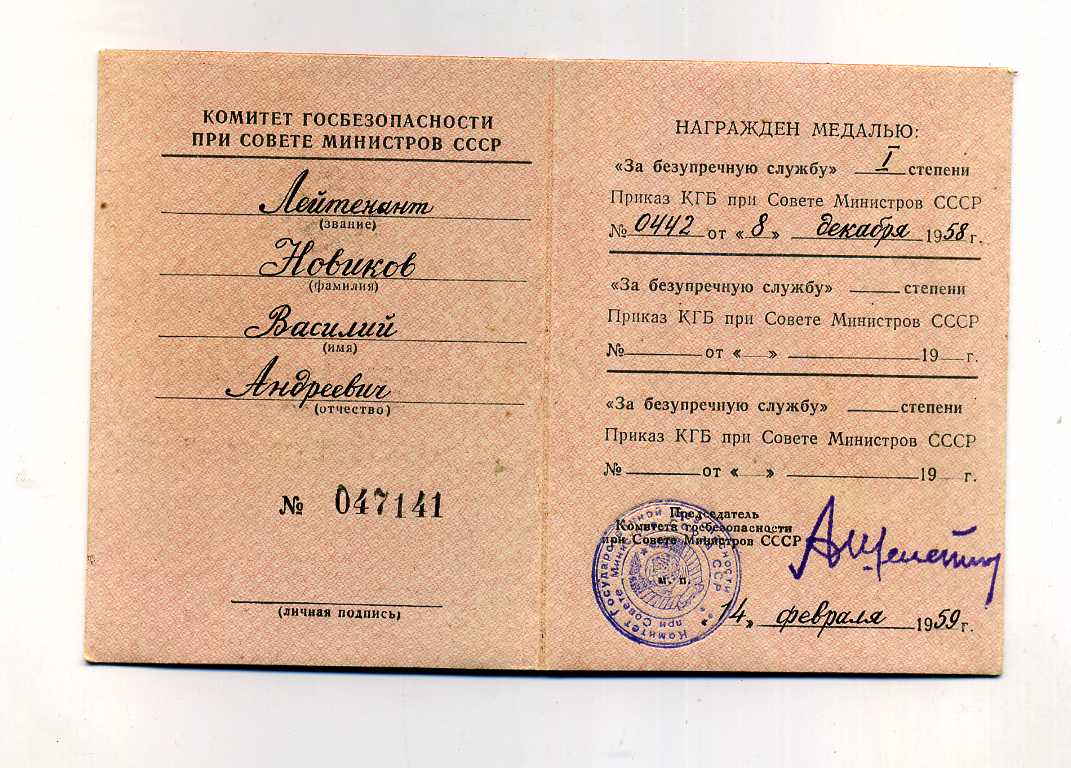 КОМИТЕТ ГОСБЕЗОПАСНОСТИ
ПРИ СОВЕТЕ МИНИСТРОВ СССР
Лейтенант
(звание)
Новиков
(фамилия)
Василий
(имя)
Андреевич
(отчество)
№ 047141
(личная подпись)
НАГРАЖДЕН МЕДАЛЬЮ:
«За безупречную службу» I степени
Приказ КГБ при Совете Министров СССР
№ 0442 от «8» декабря 1958 г.
«За безупречную службу» степени
Приказ КГБ при Совете Министров СССР
№ от « » 19 г.
«За безупречную службу» степени
Приказ КГБ при Совете Министров СССР
№ от « » 19 г.
Председатель
Комитета госбезопасности
при Совете Министров СССР
А Шелепин
м. п.
Комитет Государственной Безопасности
при Совете Министров СССР
«14» февраля 1959 г.